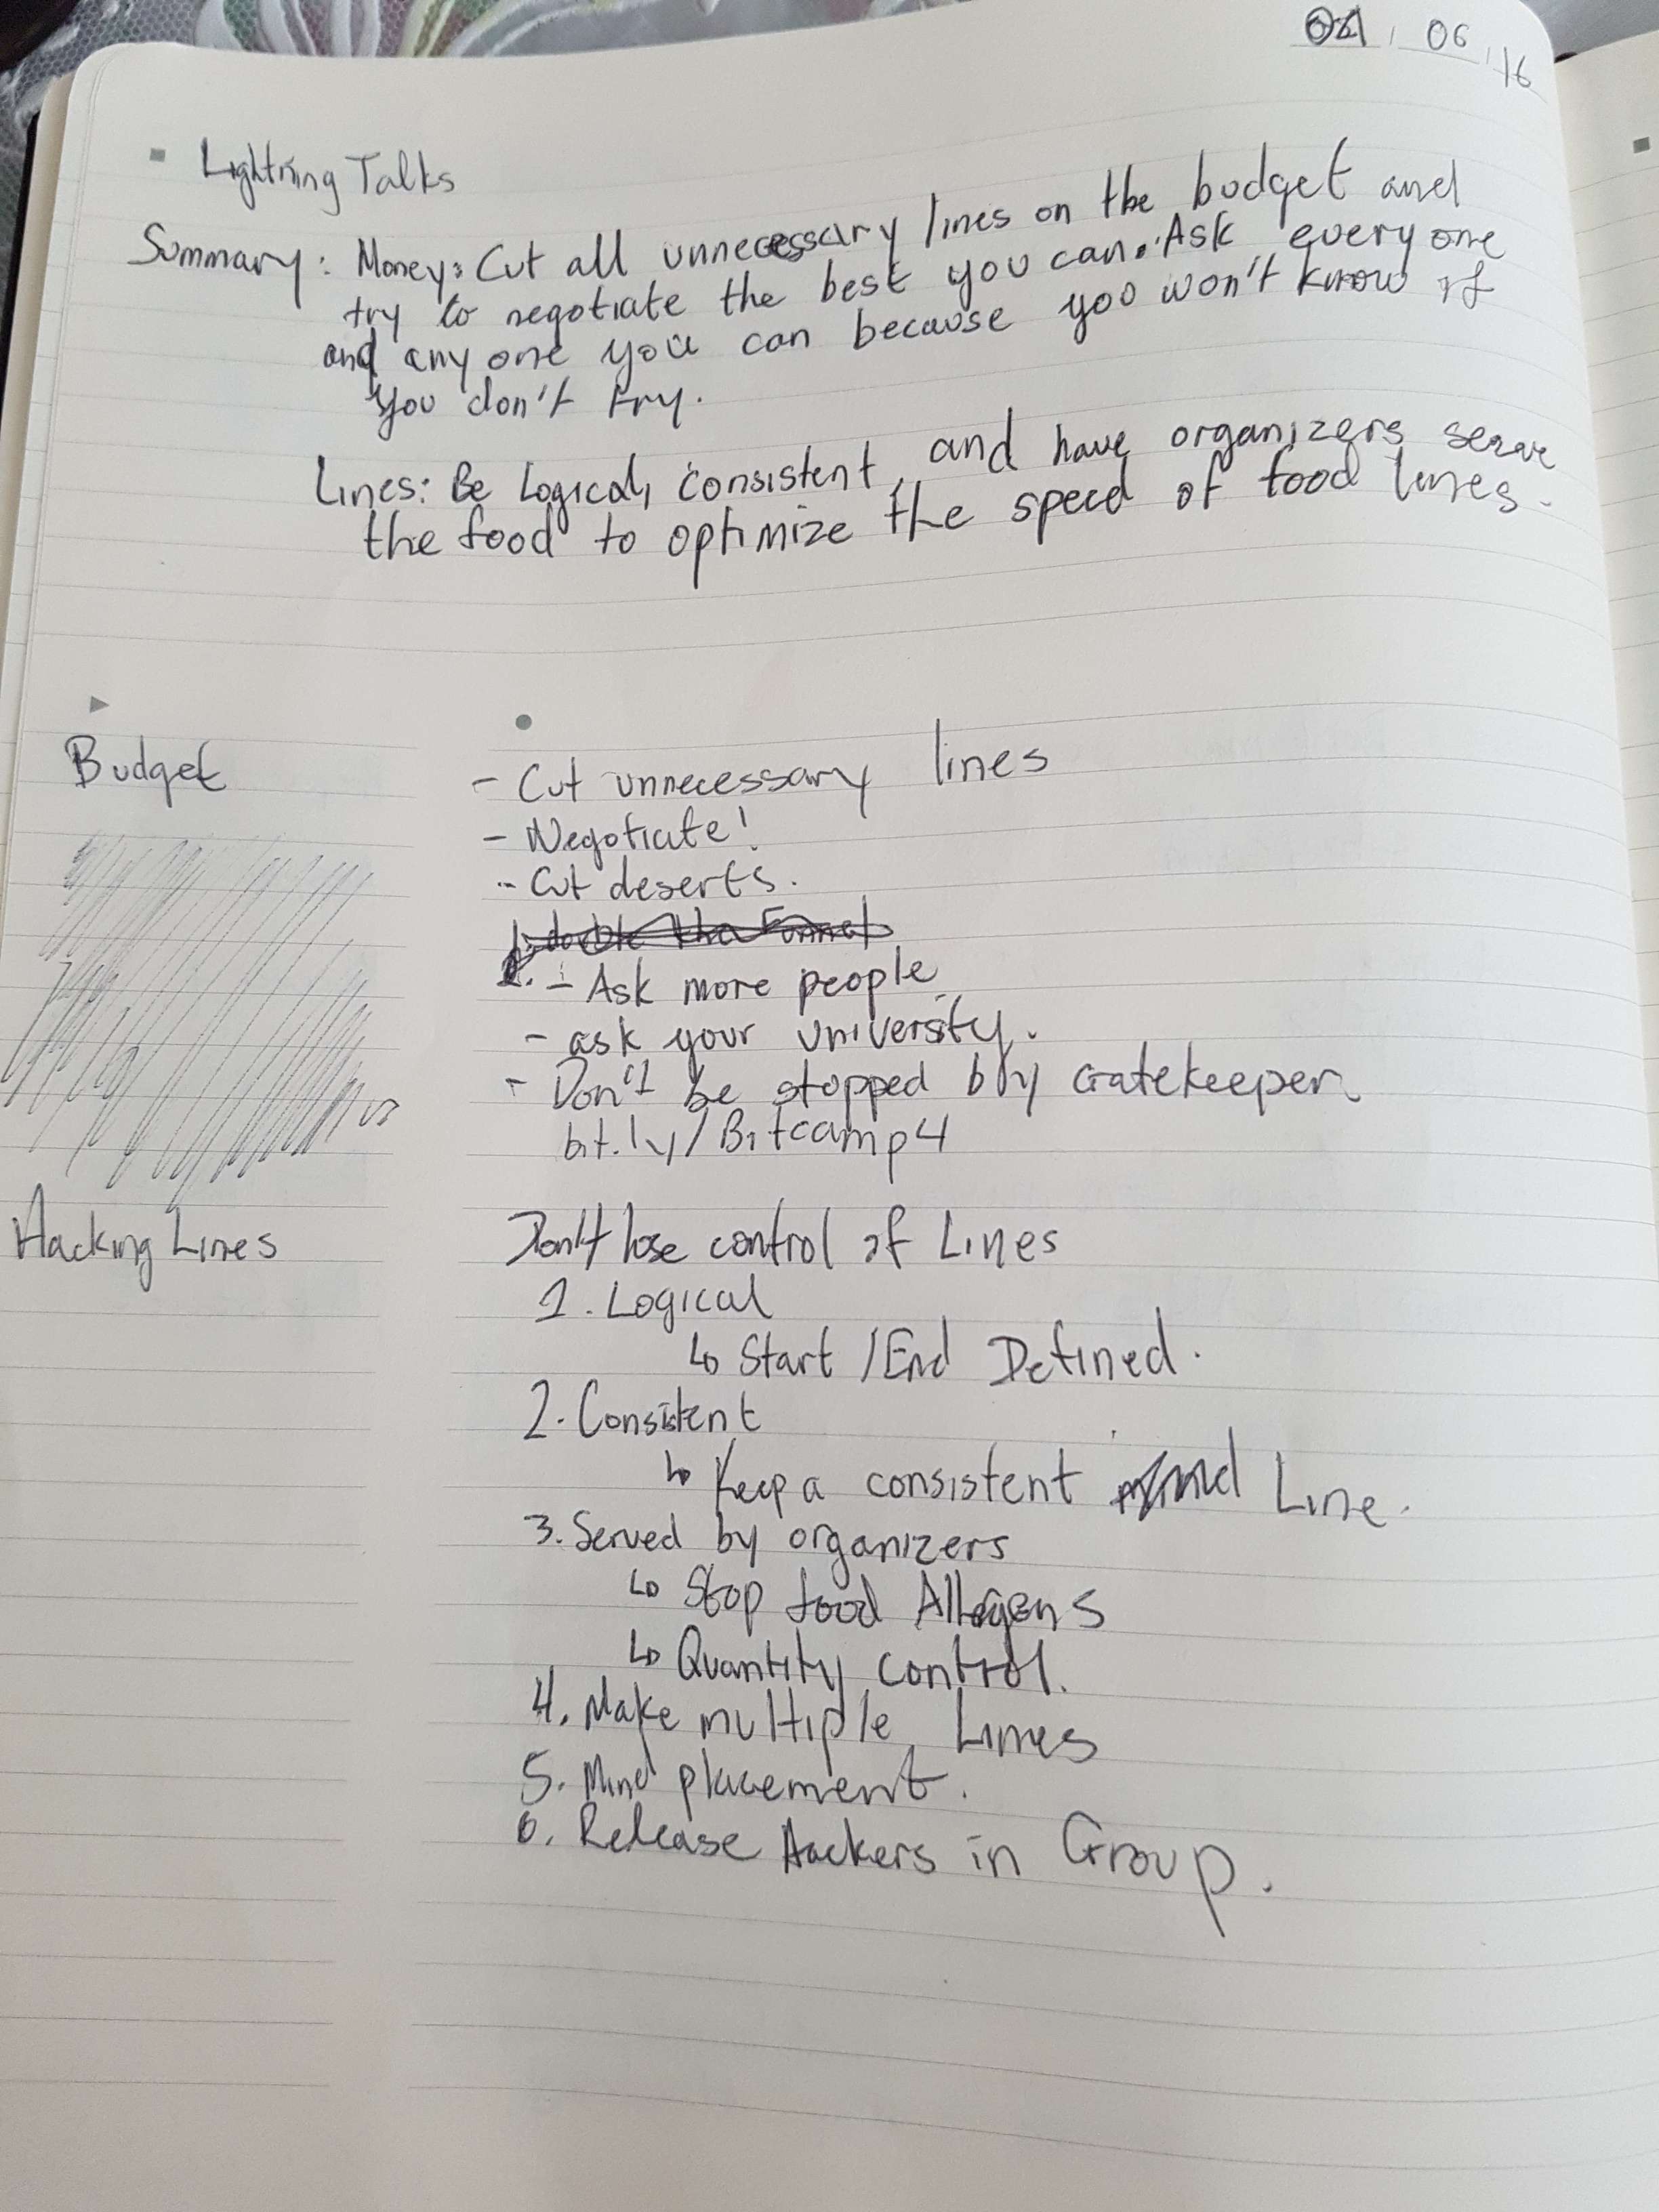 06 16
Lightning Talks
Summary: Money: Cut all unnecessary lines on the budget and
try to negotiate the best you can. Ask everyone
and anyone you can because you won't know if
you don't try.
Lines: Be Logical, consistent, and have organizers serve
the food to optimize the speed of food lines.
Budget
- Cut unnecessary lines
- Negotiate!
- Cut deserts.
double the Funnel
- Ask more people
- ask your university.
- Don't be stopped by Gatekeeper
bit.ly/Bitcamp4
Hacking Lines
Don't lose control of Lines
1. Logical
↳ Start / End Defined.
2. Consistent
↳ Keep a consistent Line.
3. Served by organizers
↳ Stop food Allergens
↳ Quantity control.
4. Make multiple Lines
5. Mind placement.
6. Release Hackers in Group.